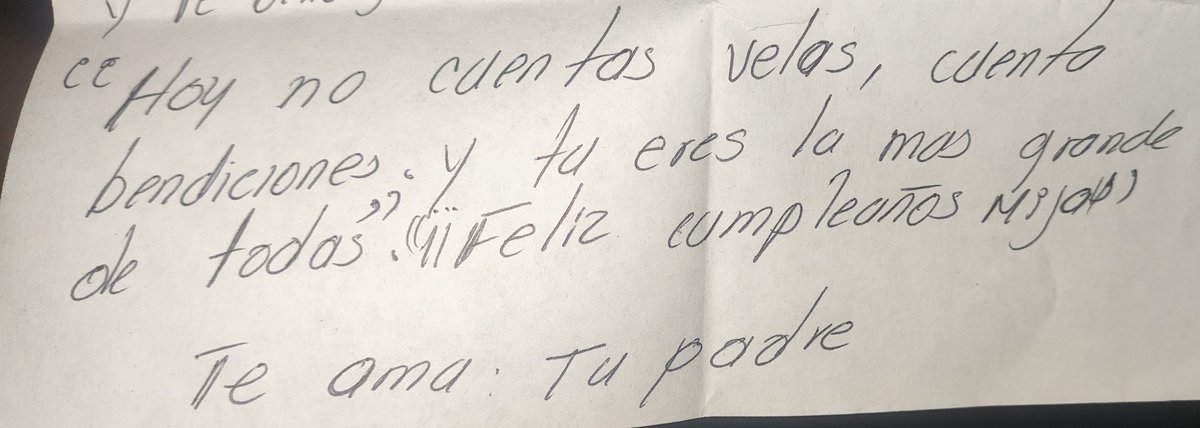 y Te
“Hoy no cuentas velas, cuento
bendiciones. y tu eres la mas grande
de todas”. “¡¡¡Feliz cumpleaños Mija”
Te ama. Tu padre